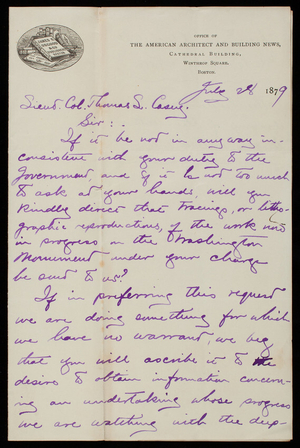 OFFICE OF
THE AMERICAN ARCHITECT AND BUILDING NEWS,
CATHEDRAL BUILDING,
WINTHROP SQUARE,
BOSTON.
July 28 1879
Lieut. Col. Thomas L. Casey.
Sir:-
If it be not in any way in-
consistent with your duty to the
Government, and if it is not too much
to ask at your hands, will you
kindly direct that tracings, or litho-
graphic reproductions, of the work now
in progress on the Washington
Monument under your charge
be sent to us?
If in preferring this request
we are doing something for which
we have no warrant, we beg
that you will ascribe it to the
desire to obtain information concern-
ing an undertaking whose progress
we are watching with the deep-